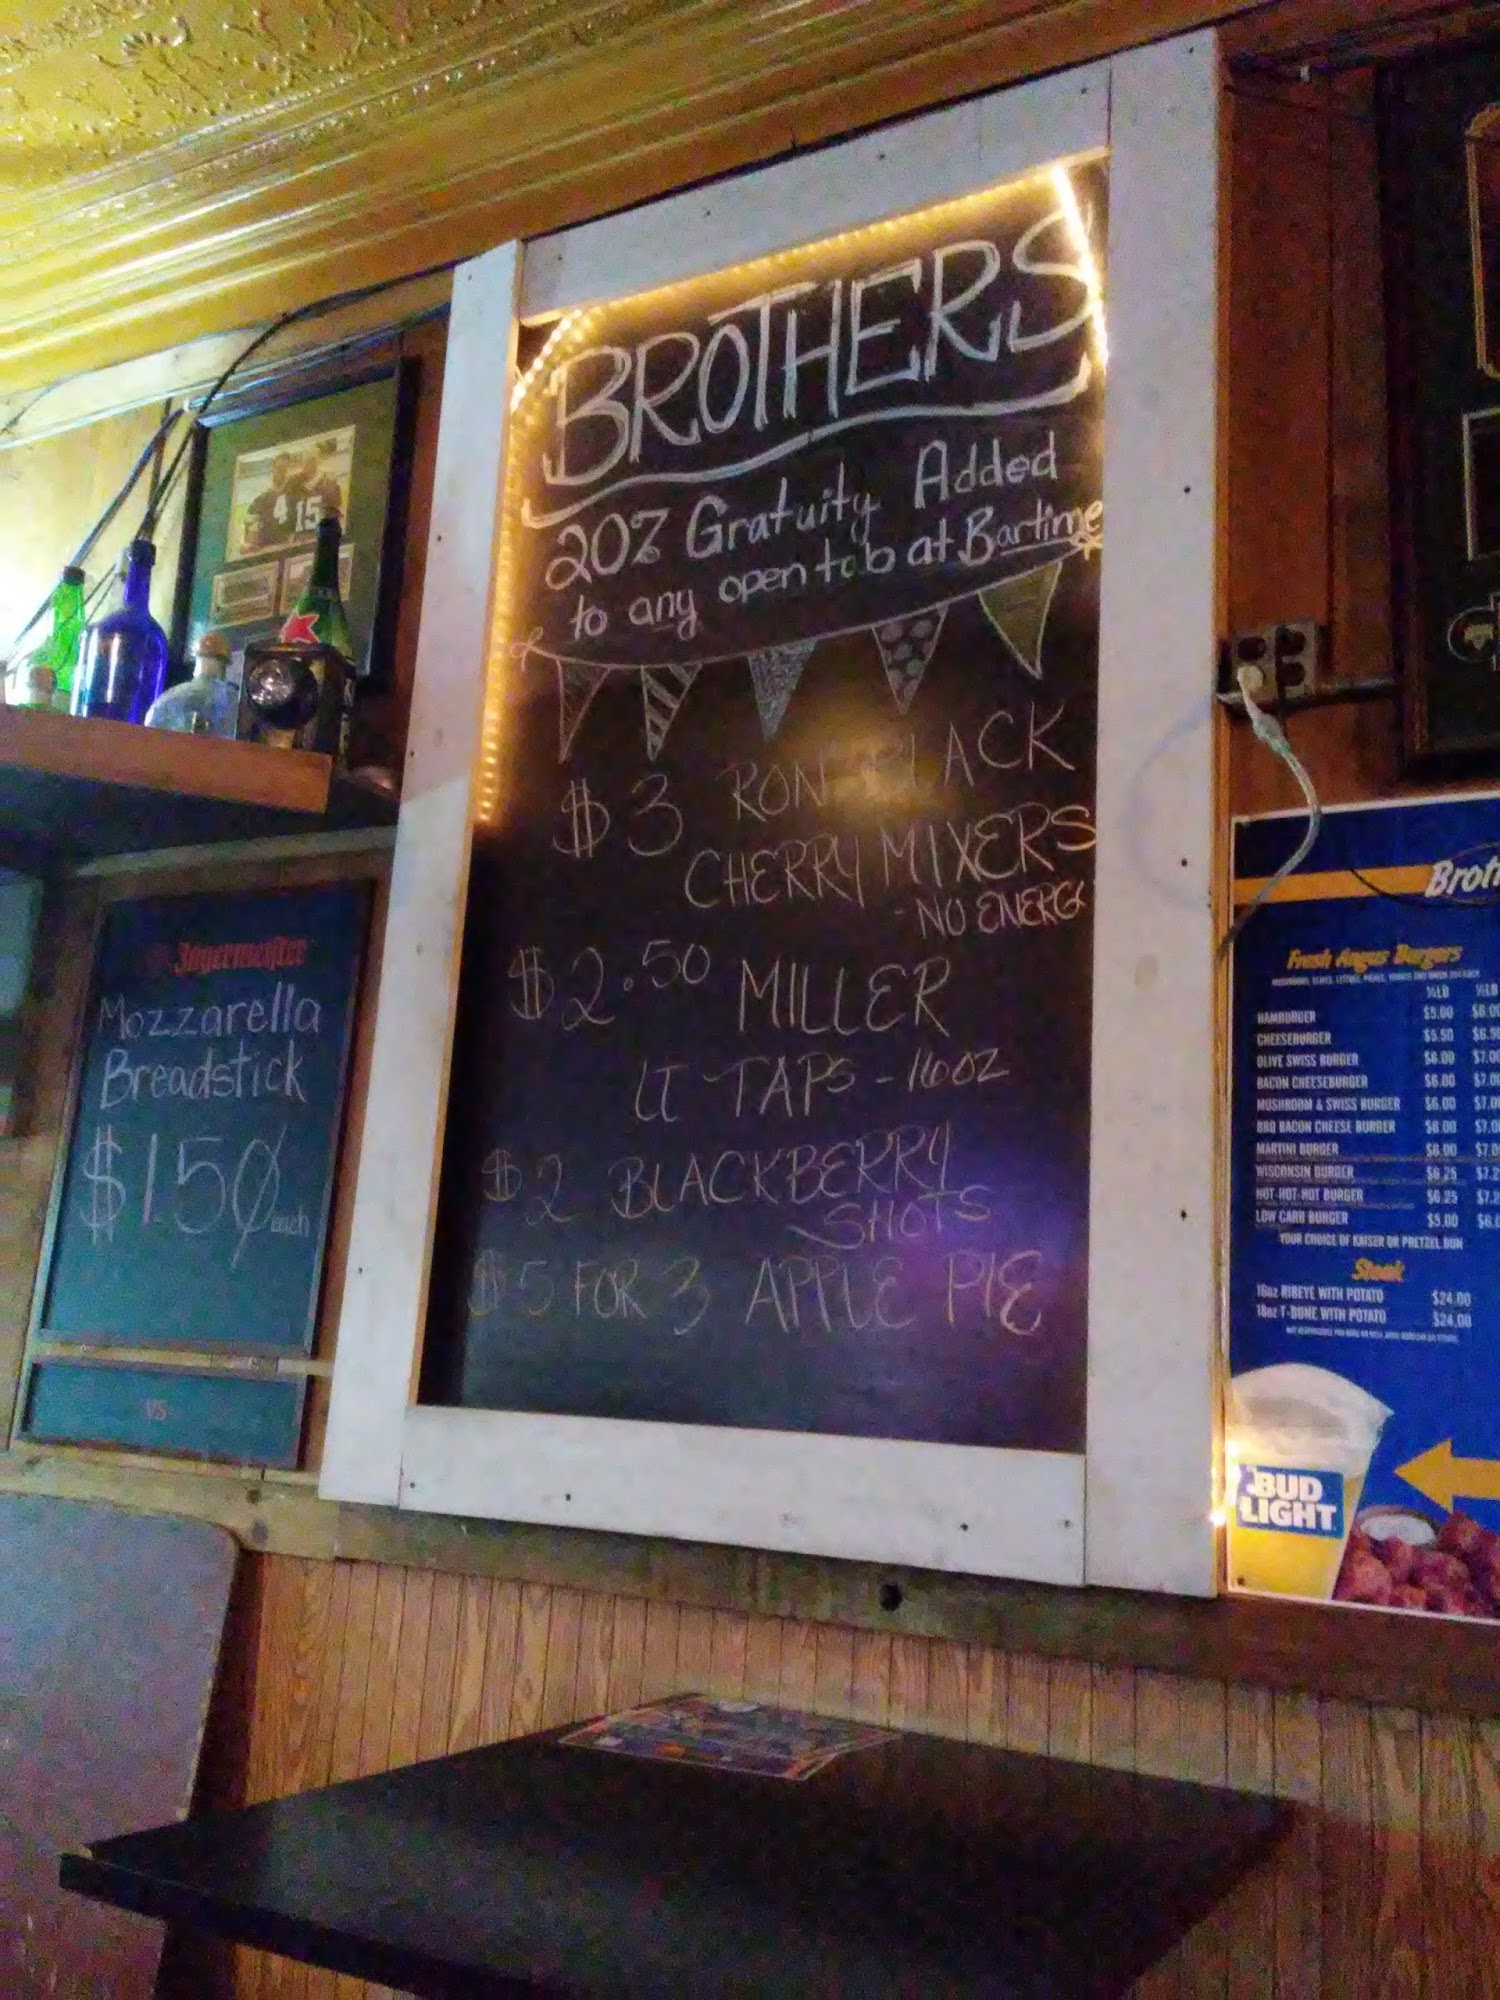 BROTHERS
20% Gratuity Added
to any open tab at Bartime
$3 RON BLACK
CHERRY MIXERS
- NO ENERGY
$2.50 MILLER
LT TAPS - 16OZ
$2 BLACKBERRY
SHOTS
$5 FOR 3 APPLE PIE
4 15
Jägermeister
Mozzarella
Breadstick
$1.50 each
VS
Broth
Fresh Angus Burgers
½LB ½LB
HAMBURGER $5.00 $6.00
CHEESEBURGER $5.50 $6.50
OLIVE SWISS BURGER $6.00 $7.00
BACON CHEESEBURGER $6.00 $7.0
MUSHROOM & SWISS BURGER $6.00 $7.0
BBQ BACON CHEESE BURGER $6.00 $7.0
MARTINI BURGER $6.00 $7.0
WISCONSIN BURGER $6.25 $7.2
HOT-HOT-HOT BURGER $6.25 $7.2
LOW CARB BURGER $5.00 $6.0
YOUR CHOICE OF KAISER OR PRETZEL BUN
Steak
16oz RIBEYE WITH POTATO $24.00
18oz T-BONE WITH POTATO $24.00
BUD
LIGHT